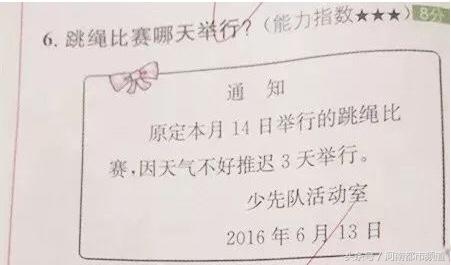 6. 跳绳比赛哪天举行？(能力指数★★★) 8分
通 知
原定本月 14 日举行的跳绳比
赛，因天气不好推迟 3 天举行。
少先队活动室
2016 年 6 月 13 日
头条号 / 河南都市频道